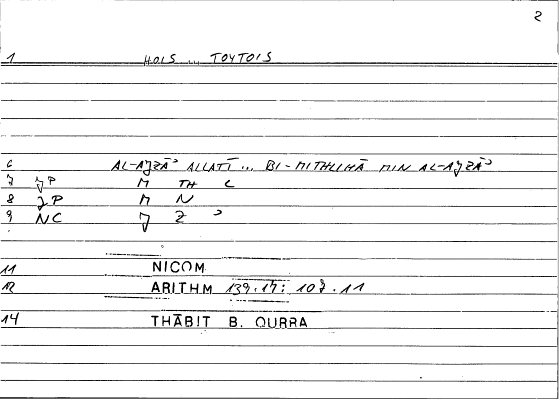 2
1 HOIS ... TOYTOIS
6 AL-AJZĀʾ ALLATĪ ... BI-MITHLIHĀ MIN AL-AJZĀʾ
7 JP M TH L
8 JP M N
9 NC J Z ʾ
11 NICOM
12 ARITHM 139.17; 107.11
14 THĀBIT B. QURRA